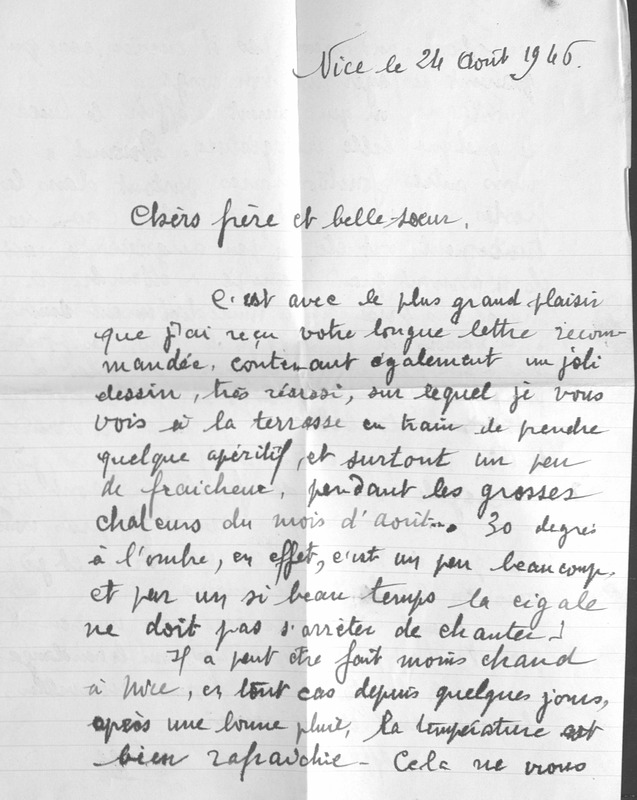 Nice le 24 Août 1946.
Chèrs frère et belle-soeur,
C'est avec le plus grand plaisir
que j'ai reçu votre longue lettre recom-
mandée, contenant également un joli
dessin, très réussi, sur lequel je vous
vois à la terrasse en train de prendre
quelque apéritif, et surtout un peu
de fraicheur, pendant les grosses
chaleurs du mois d'aout... 30 degrés
à l'ombre, en effet, c'est un peu beaucoup,
et par un si beau temps la cigale
ne doit pas s'arrêter de chanter!
Il a peut être fait moins chaud
à Nice, en tout cas depuis quelques jours,
après une bonne pluie, la température est
bien rafraichie - Cela ne vous